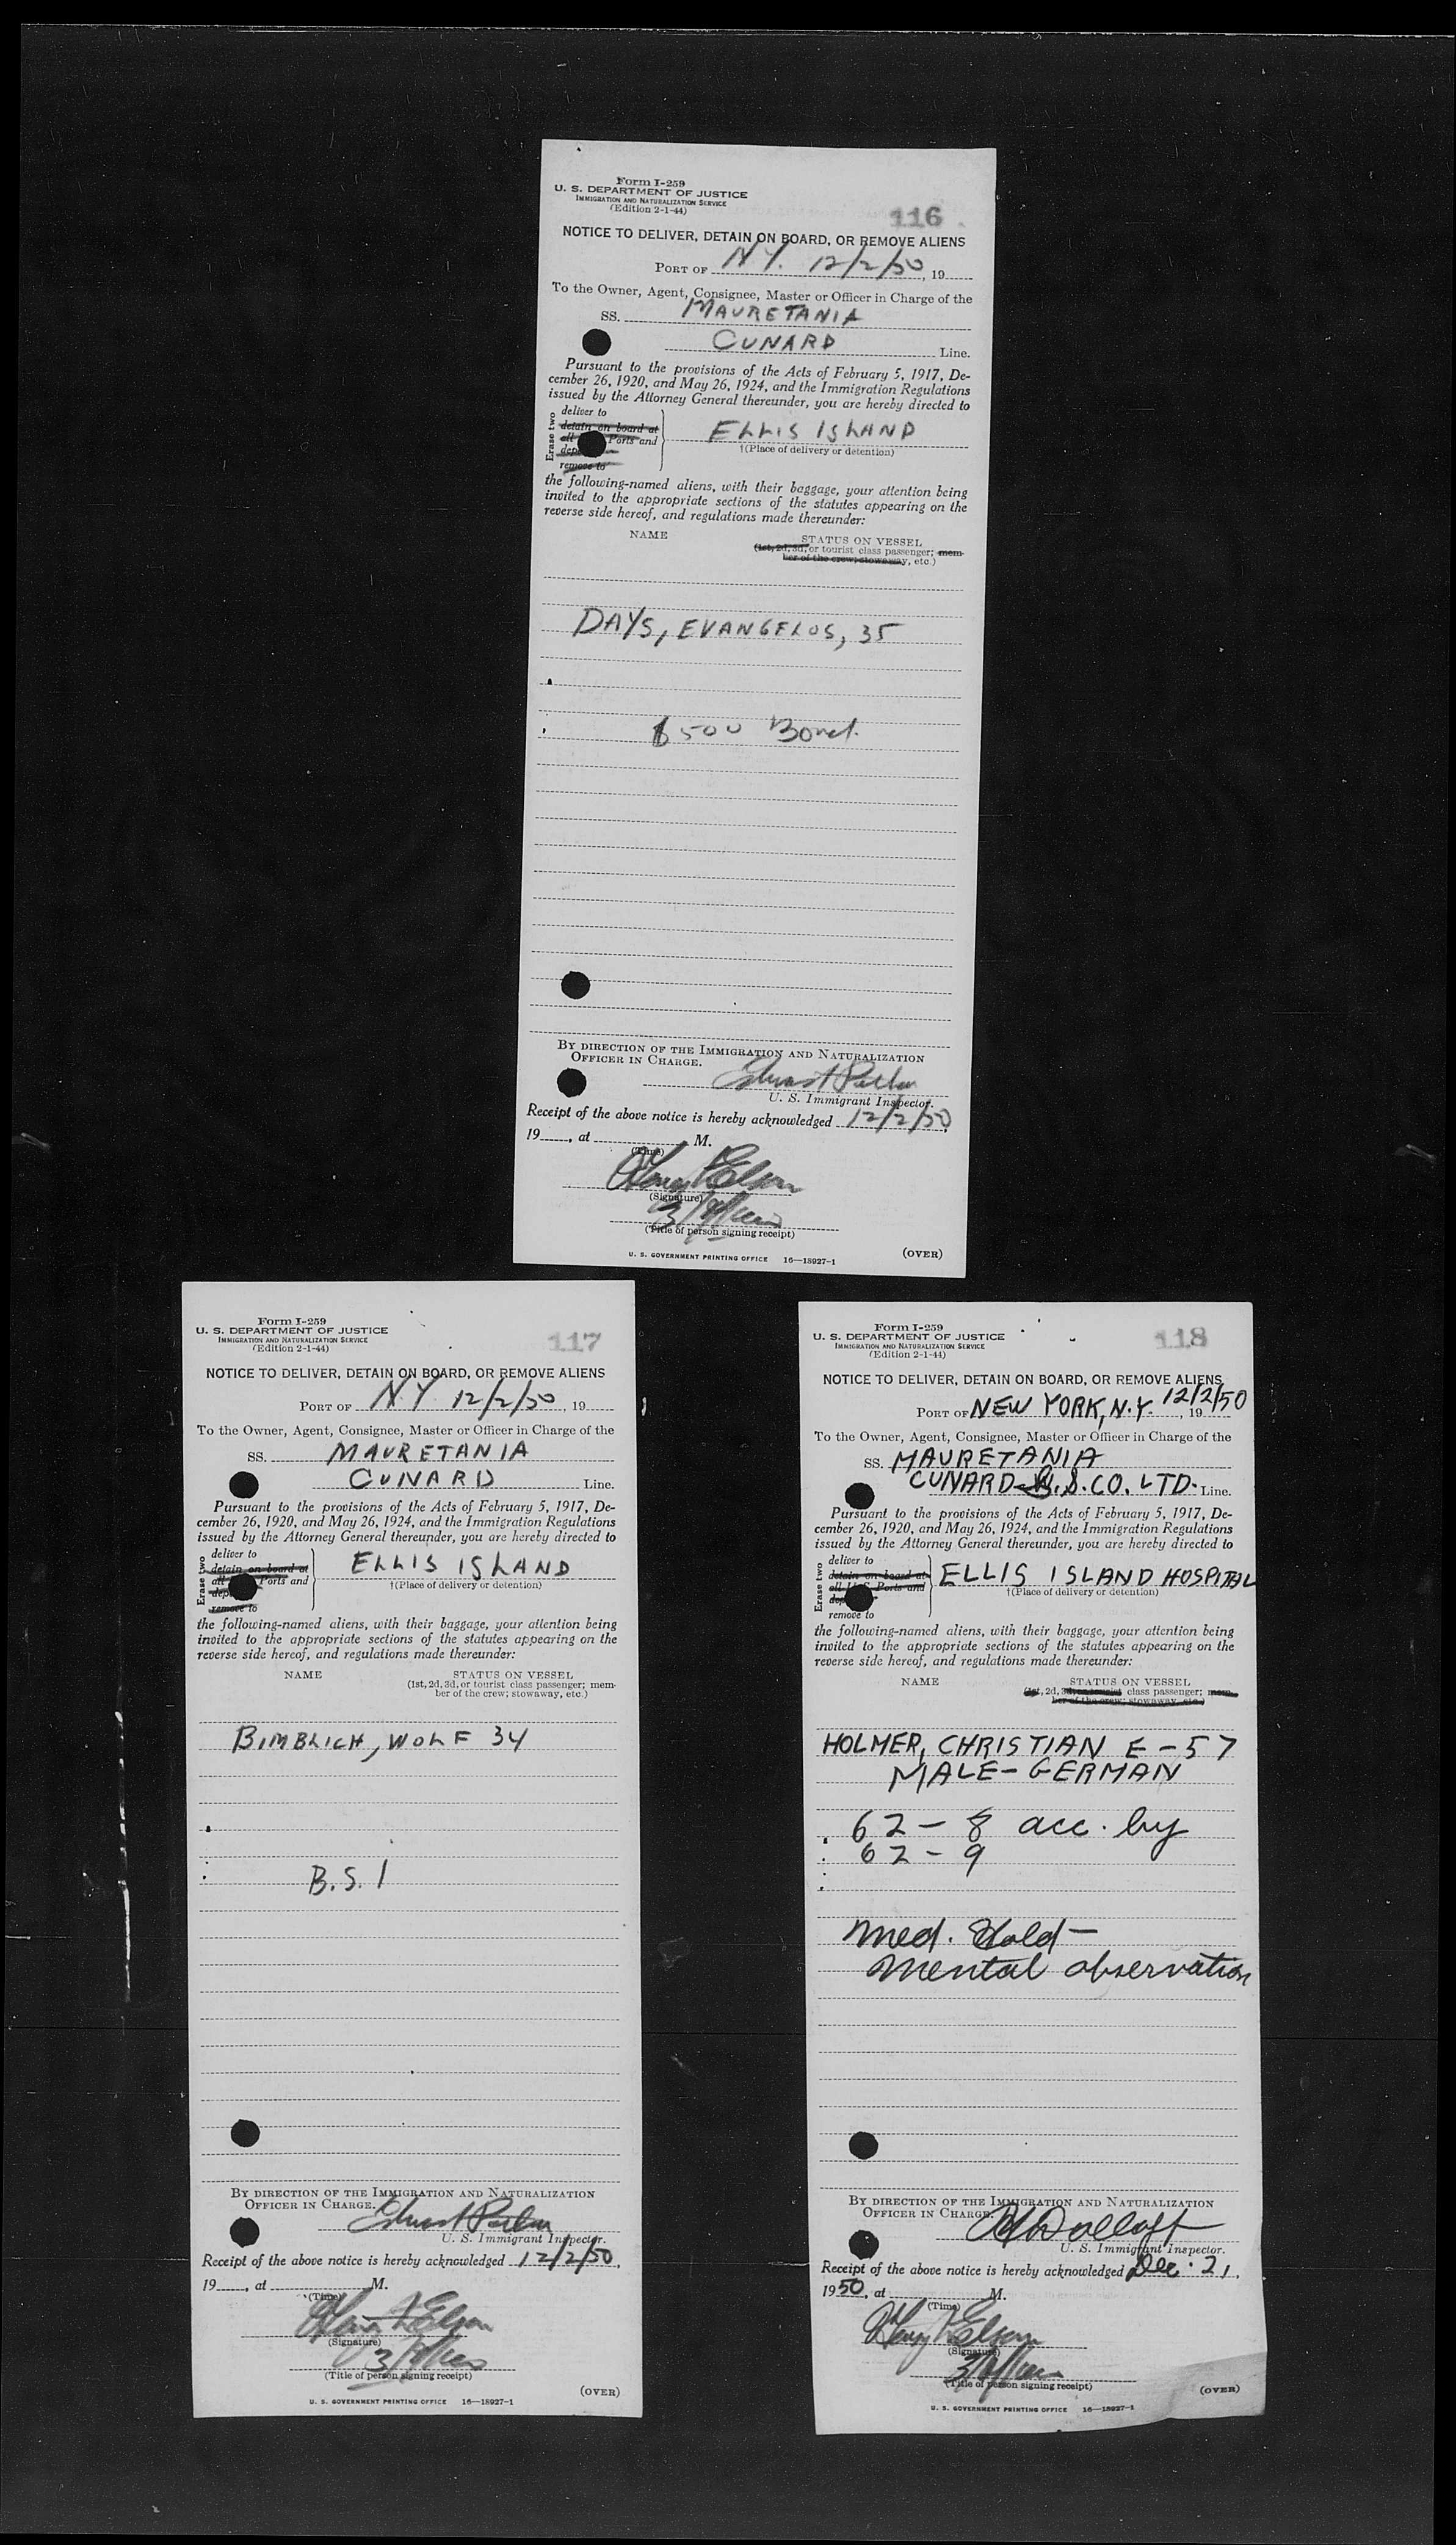 Form I-259
U. S. DEPARTMENT OF JUSTICE
IMMIGRATION AND NATURALIZATION SERVICE
(Edition 2-1-44)
116
NOTICE TO DELIVER, DETAIN ON BOARD, OR REMOVE ALIENS
PORT OF N.Y. 12/2/50, 19
To the Owner, Agent, Consignee, Master or Officer in Charge of the
SS. MAURETANIA
CUNARD Line.
Pursuant to the provisions of the Acts of February 5, 1917, De-
cember 26, 1920, and May 26, 1924, and the Immigration Regulations
issued by the Attorney General thereunder, you are hereby directed to
Erase two
deliver to
detain on board at
all Ports and
remove to
ELLIS ISLAND
†(Place of delivery or detention)
the following-named aliens, with their baggage, your attention being
invited to the appropriate sections of the statutes appearing on the
reverse side hereof, and regulations made thereunder:
NAME STATUS ON VESSEL
(1st, 2d, 3d, or tourist class passenger; mem-
ber of the crew; stowaway, etc.)
DAYS, EVANGELOS, 35
$500 Bond.
BY DIRECTION OF THE IMMIGRATION AND NATURALIZATION
OFFICER IN CHARGE.
U. S. Immigrant Inspector.
Receipt of the above notice is hereby acknowledged 12/2/50,
19, at M.
(Time)
(Signature)
(Title of person signing receipt)
U. S. GOVERNMENT PRINTING OFFICE 16—18927-1
(OVER)
Form I-259
U. S. DEPARTMENT OF JUSTICE
IMMIGRATION AND NATURALIZATION SERVICE
(Edition 2-1-44)
117
NOTICE TO DELIVER, DETAIN ON BOARD, OR REMOVE ALIENS
PORT OF N.Y. 12/2/50, 19
To the Owner, Agent, Consignee, Master or Officer in Charge of the
SS. MAURETANIA
CUNARD Line.
Pursuant to the provisions of the Acts of February 5, 1917, De-
cember 26, 1920, and May 26, 1924, and the Immigration Regulations
issued by the Attorney General thereunder, you are hereby directed to
Erase two
deliver to
detain on board at
all Ports and
remove to
ELLIS ISLAND
†(Place of delivery or detention)
the following-named aliens, with their baggage, your attention being
invited to the appropriate sections of the statutes appearing on the
reverse side hereof, and regulations made thereunder:
NAME STATUS ON VESSEL
(1st, 2d, 3d, or tourist class passenger; mem-
ber of the crew; stowaway, etc.)
BIMBLICH, WOLF 34
B.S.I
BY DIRECTION OF THE IMMIGRATION AND NATURALIZATION
OFFICER IN CHARGE.
U. S. Immigrant Inspector.
Receipt of the above notice is hereby acknowledged 12/2/50,
19, at M.
(Time)
(Signature)
(Title of person signing receipt)
(OVER)
U. S. GOVERNMENT PRINTING OFFICE 16—18927-1
Form I-259
U. S. DEPARTMENT OF JUSTICE
IMMIGRATION AND NATURALIZATION SERVICE
(Edition 2-1-44)
118
NOTICE TO DELIVER, DETAIN ON BOARD, OR REMOVE ALIENS
PORT OF NEW YORK, N.Y. 12/2/50, 19
To the Owner, Agent, Consignee, Master or Officer in Charge of the
SS. MAURETANIA
CUNARD S.S.CO. LTD. Line.
Pursuant to the provisions of the Acts of February 5, 1917, De-
cember 26, 1920, and May 26, 1924, and the Immigration Regulations
issued by the Attorney General thereunder, you are hereby directed to
Erase two
deliver to
detain on board at
all U. S. Ports and
remove to
ELLIS ISLAND HOSPITAL
†(Place of delivery or detention)
the following-named aliens, with their baggage, your attention being
invited to the appropriate sections of the statutes appearing on the
reverse side hereof, and regulations made thereunder:
NAME STATUS ON VESSEL
(1st, 2d, 3d, or tourist class passenger; mem-
ber of the crew; stowaway, etc.)
HOLMER, CHRISTIAN E-57
MALE-GERMAN
62-8 acc. by
62-9
Med. Hold-
Mental observation
BY DIRECTION OF THE IMMIGRATION AND NATURALIZATION
OFFICER IN CHARGE.
U. S. Immigrant Inspector.
Receipt of the above notice is hereby acknowledged Dec. 2,
1950, at M.
(Time)
(Signature)
(Title of person signing receipt)
(OVER)
U. S. GOVERNMENT PRINTING OFFICE 16—18927-1